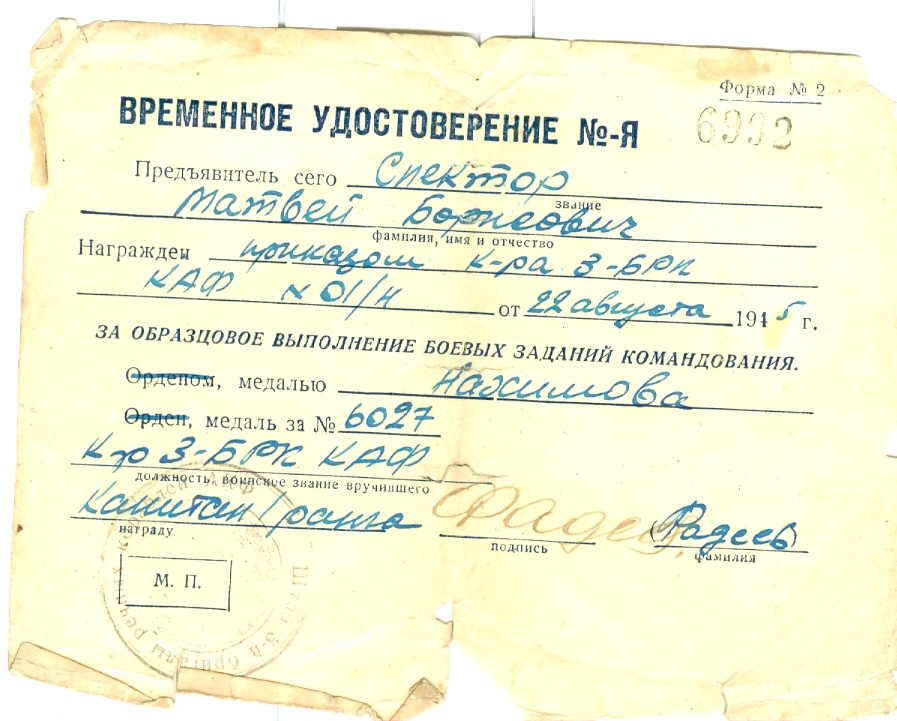 Форма № 2
ВРЕМЕННОЕ УДОСТОВЕРЕНИЕ №-Я 6992
Предъявитель сего Спектор
звание
Матвей Борисович
фамилия, имя и отчество
Награжден приказом к-ра 3-БРК
КАФ № 01/н от 22 августа 1945 г.
ЗА ОБРАЗЦОВОЕ ВЫПОЛНЕНИЕ БОЕВЫХ ЗАДАНИЙ КОМАНДОВАНИЯ.
Орденом, медалью Нахимова
Орден, медаль за № 6027
К-р 3-БРК КАФ
должность, воинское звание вручившего
Капитан 1 ранга Фадеев (Фадеев)
награду подпись фамилия
М. П.
Штаб 3-й бригады речных кораблей АКФ